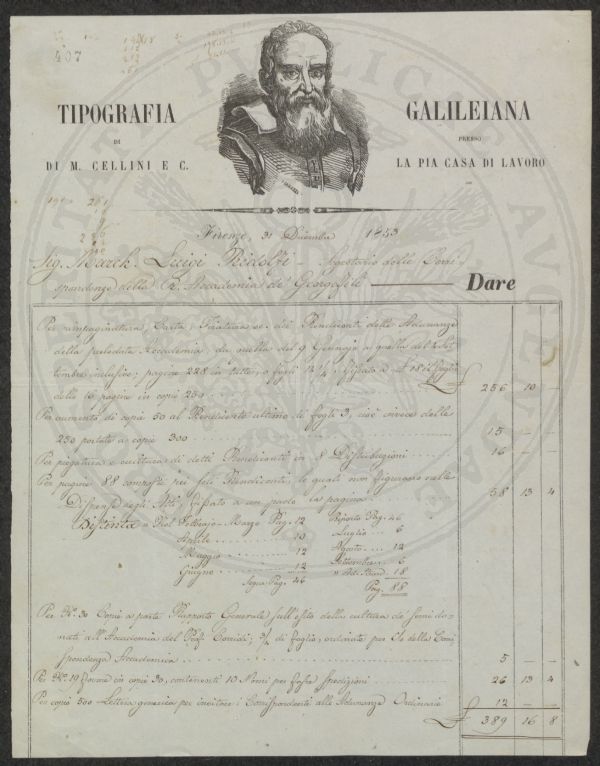 407
TIPOGRAFIA GALILEIANA
DI PRESSO
DI M. CELLINI E C. LA PIA CASA DI LAVORO
Firenze, 31 Dicembre 1853
Sig. March. Luigi Ridolfi - Segretario delle Corri-
spondenze della R. Accademia de' Georgofili Dare
Per rimpaginatura, Carta, Tiratura ec. dei Rendiconti delle Adunanze
della prelodata Accademia, da quella del 9 Gennajo a quella del 4 Set-
tembre inclusive; pagine 228 in tutto, o fogli 14 1/4, fissato a £ 18 il foglio
delle 16 pagine in copie 250 £ 256 10 —
Per aumento di copie 50 al Rendiconto ultimo di fogli 3, cioè invece delle
250 portate a copie 300 15 — —
Per piegatura e cucitura di detti Rendiconti in 8 Distribuzioni 16 — —
Per pagine 88 composte pei soli Rendiconti, le quali non figurano nelle
Dispense degli Atti, fissato a un paolo la pagina 58 13 4
Distinta Febbrajo - Marzo Pag. 12 Riporto Pag. 46
Aprile 10 Luglio 6
Maggio 12 Agosto 12
Giugno 12 Settembre 6
Segue Pag. 46 18
Pag. 88
Per No. 30 Copie a parte Rapporto Generale sull'esito della cultura de' semi do-
nati all'Accademia del Prof. 3/4 di foglio, ordinate per C/o della Corri
spondenza Accademica 5 — —
Per No. 19 in copie 30, contenenti 10 Nomi per fascie spedizioni 26 13 4
Per copie 500 Lettera generica per invitare i Corrispondenti alle Adunanze Ordinarie 12 — —
£ 389 16 8